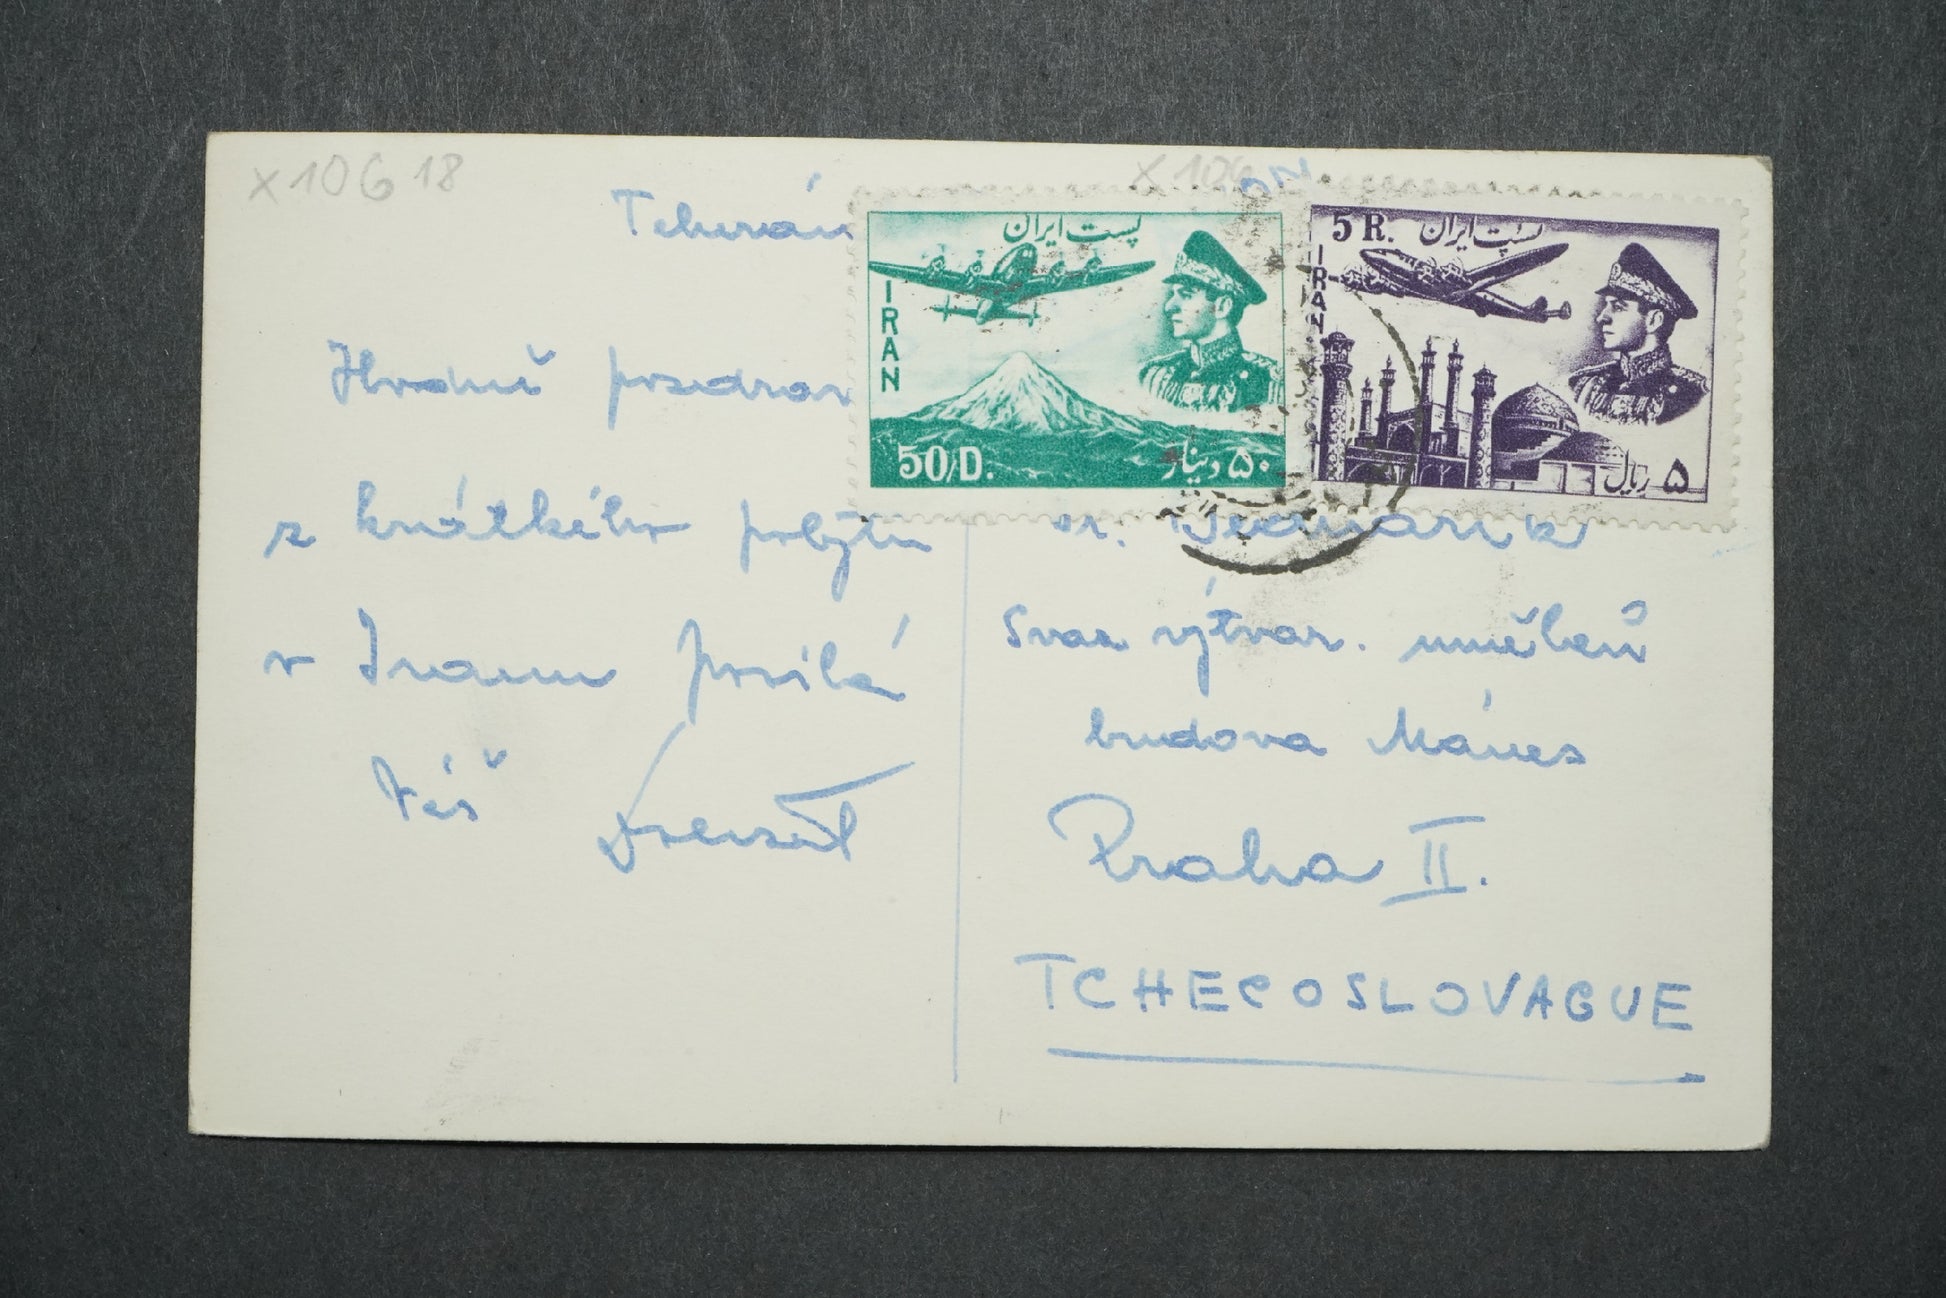 x 10 G 18
Teherán
Hrdně pozdrav
z krátkého pobytu
v Iranu posílá
Váš
پست ایران
IRAN
50/D.
۵۰ دینار
5 R.
پست ایران
IRAN
۵ ریال
x 106
Svaz výtvar. umělců
budova Mánes
Praha II.
TCHECOSLOVAGUE